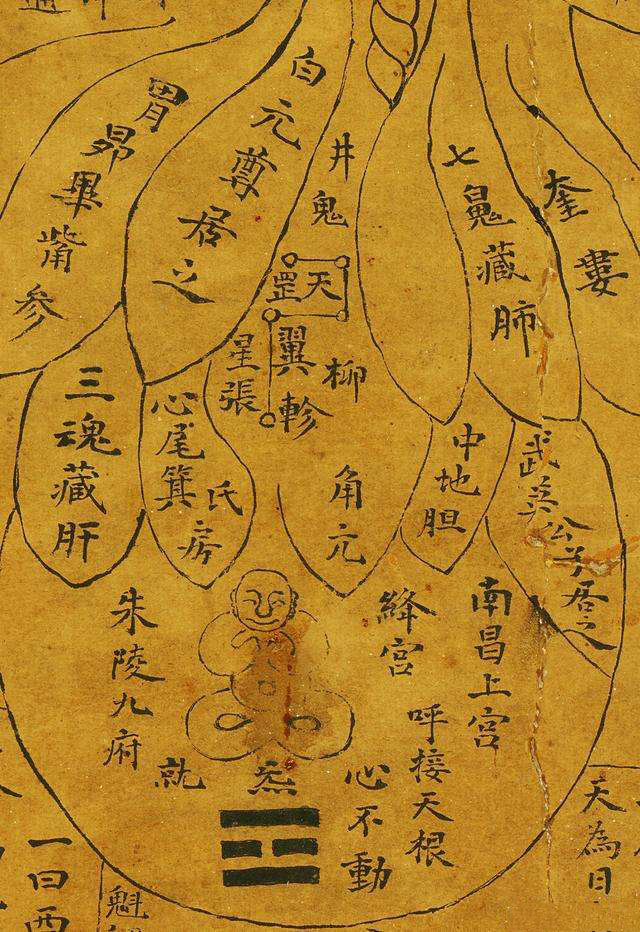 奎婁
七鬼藏肺
武英公子居之
中地胆
井鬼
天罡
柳
翼軫
星張
角亢
白元尊居之
胃昴畢觜参
氐房
心尾箕
三魂藏肝
南昌上宮
絳宮
呼接天根
心不動
炁
就
朱陵九府
天為日
魁
一曰酉